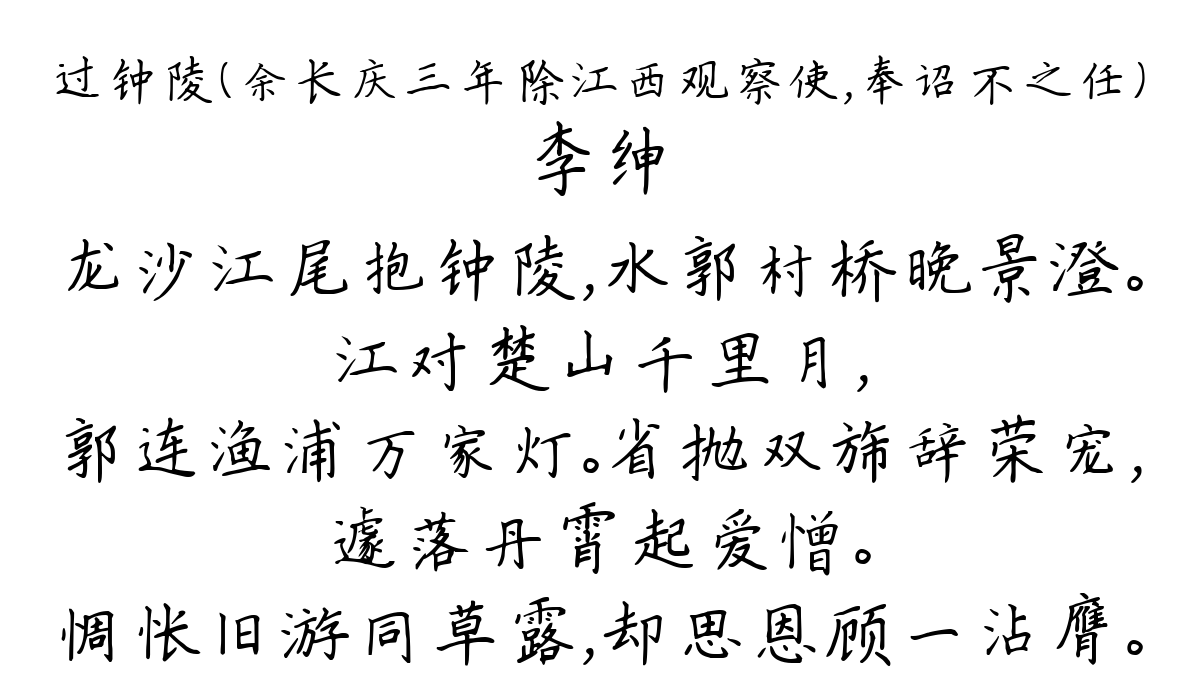 过钟陵(余长庆三年除江西观察使,奉诏不之任)
李绅
龙沙江尾抱钟陵,水郭村桥晚景澄。
江对楚山千里月,
郭连渔浦万家灯。省抛双旆辞荣宠,
遽落丹霄起爱憎。
惆怅旧游同草露,却思恩顾一沾膺。